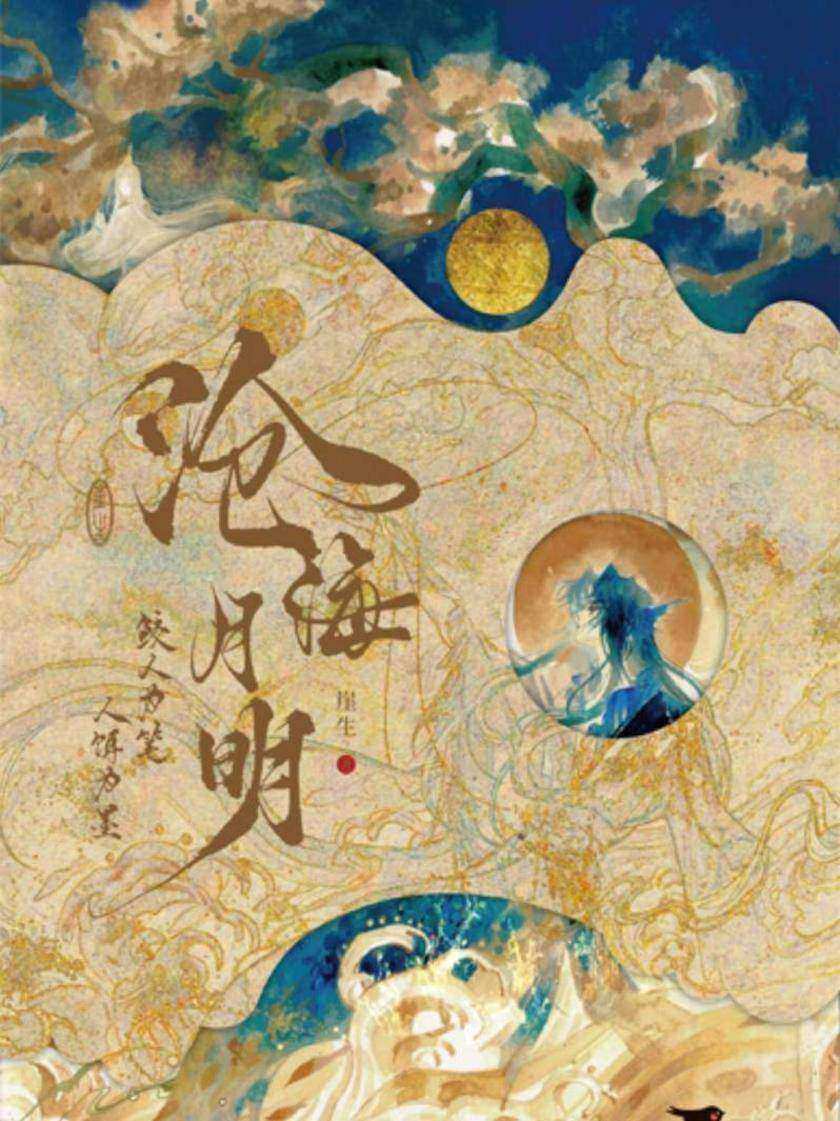 沧海
月明
崖生
鲛人为笔
人饵为墨